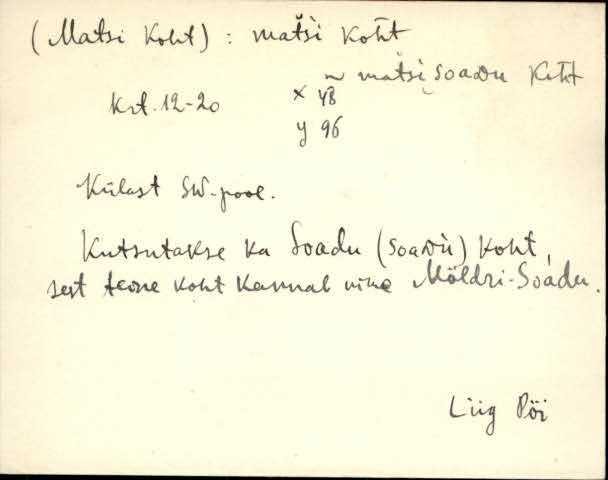 (Matsi Koht) : matsi koht
~ matsi soadu koht
krt. 12-20 x 48
y 96
Külast SW-pool.
Kutsutakse ka Soadu (soadu) koht,
sest teine koht kannab nime Möldri-Soadu.
Liig Pöi